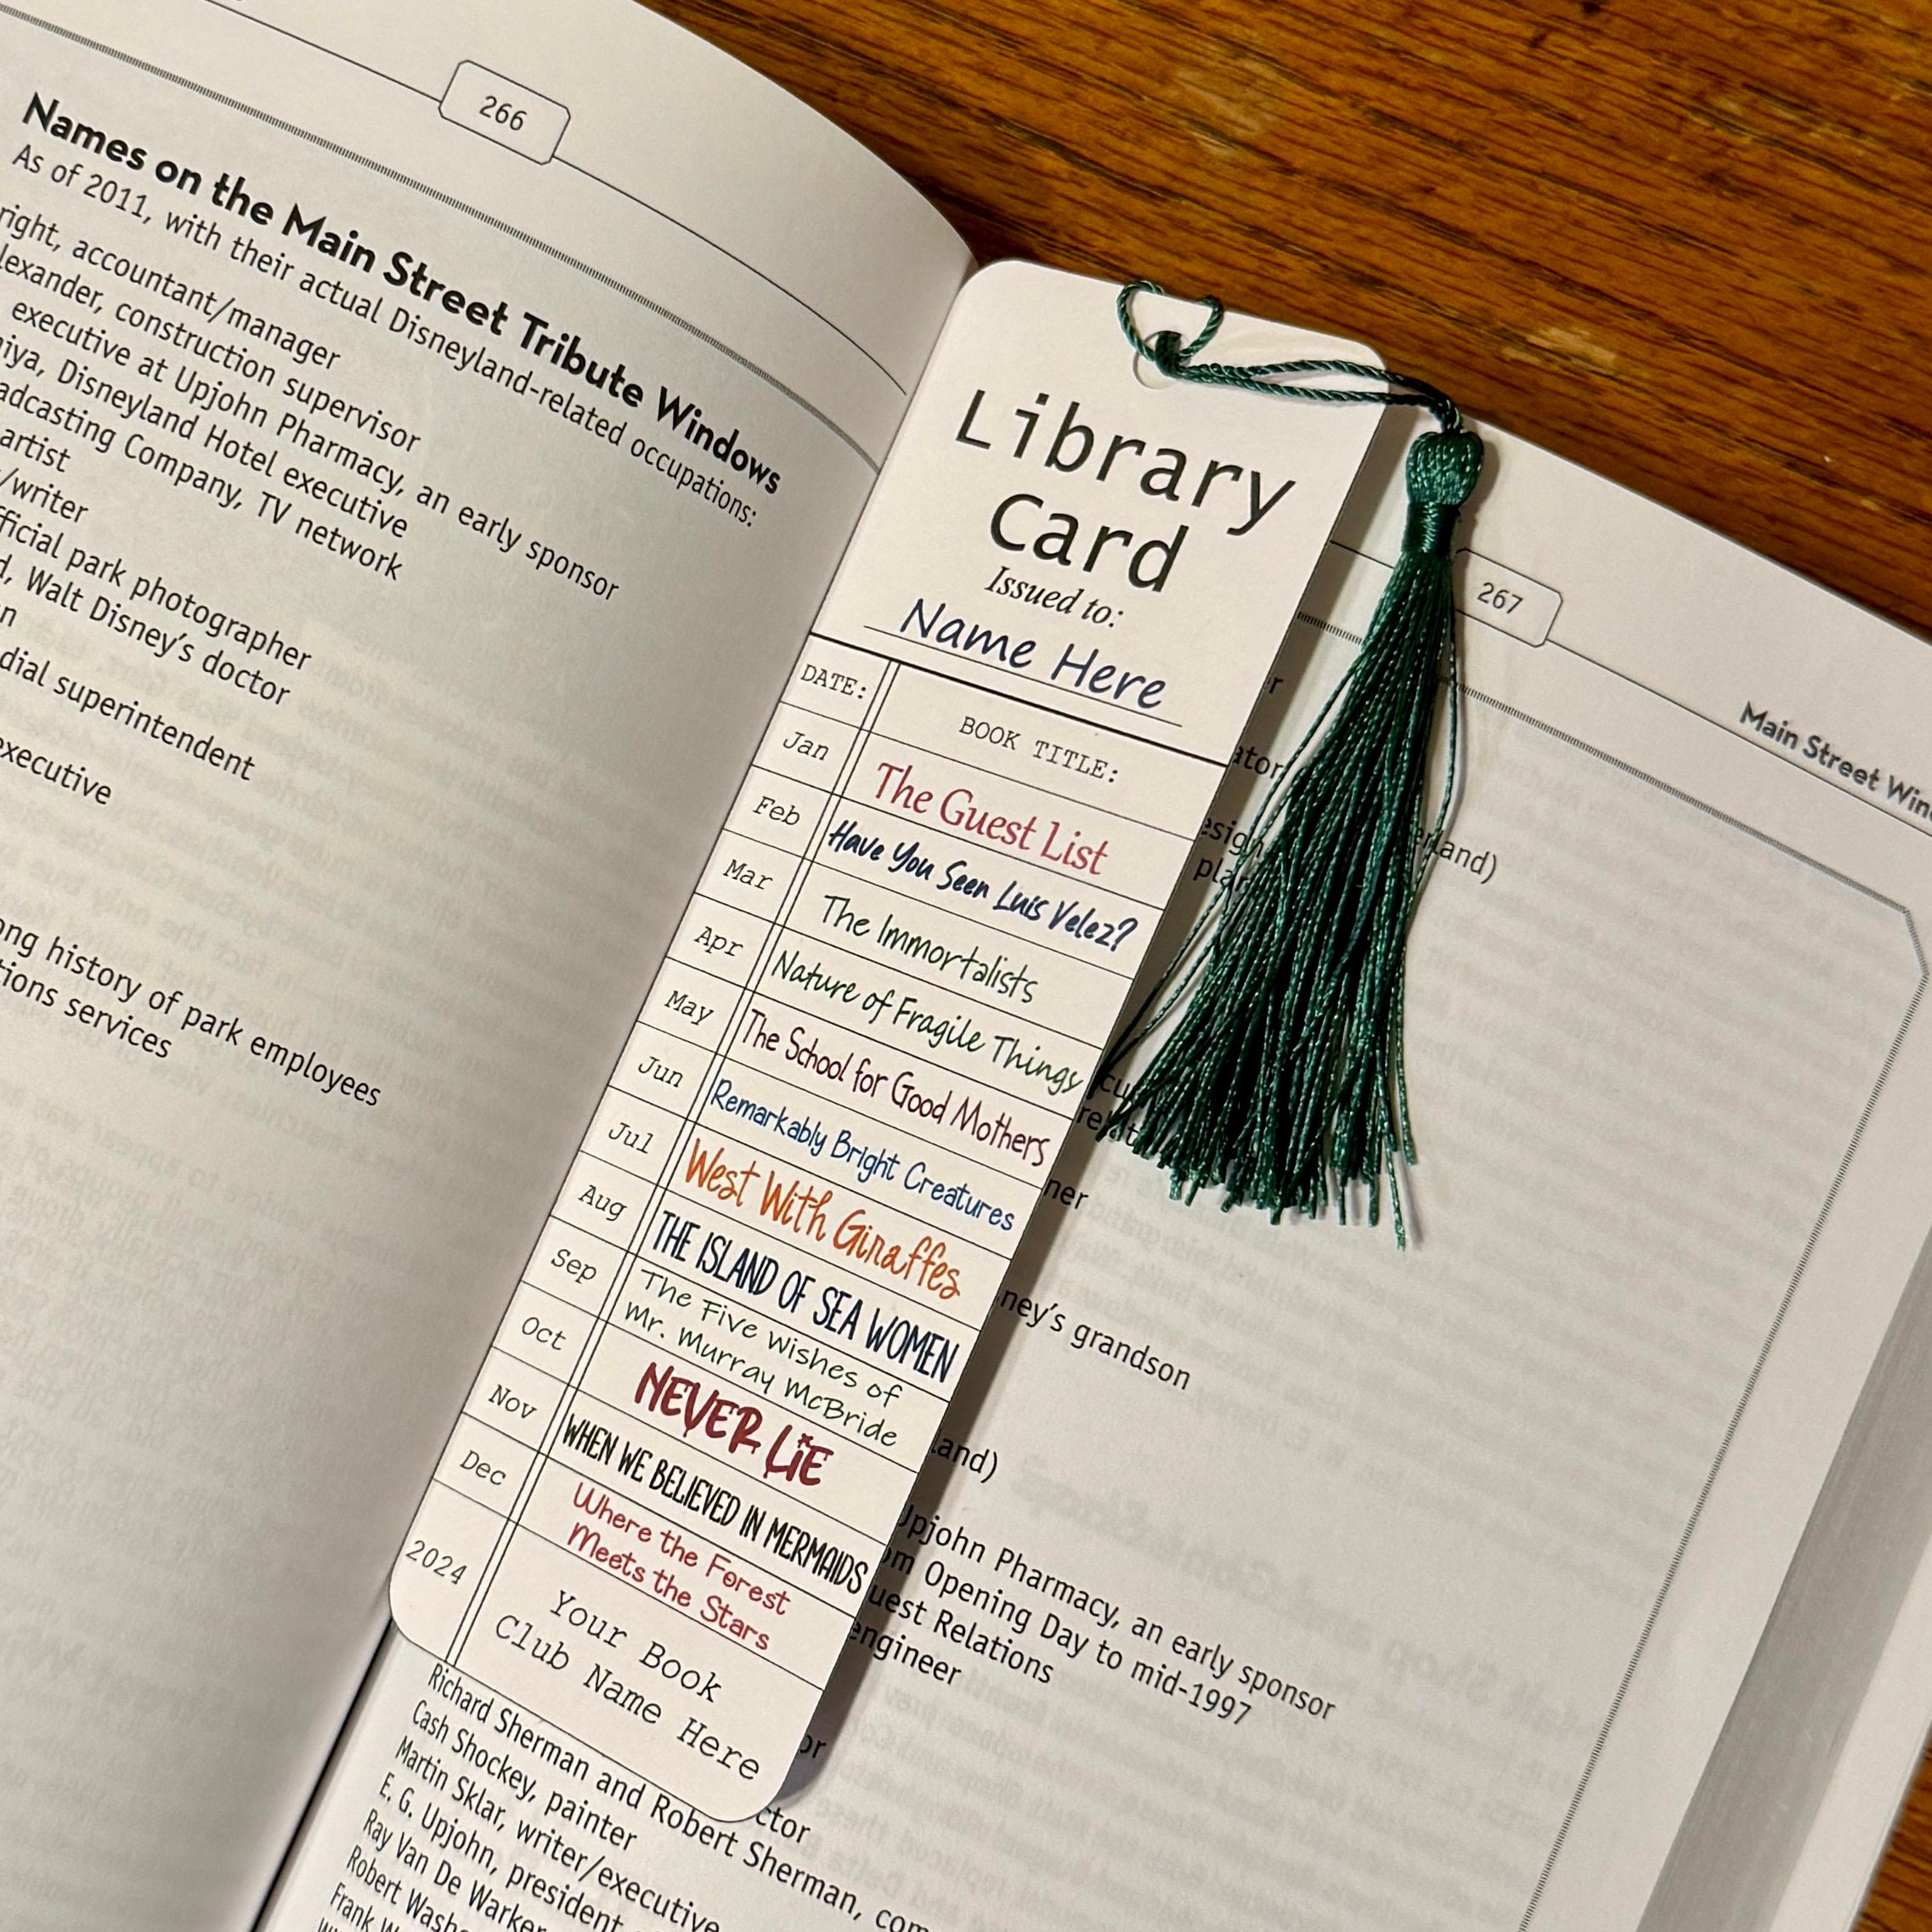 266
Names on the Main Street Tribute Windows
As of 2011, with their actual Disneyland-related occupations:
right, accountant/manager
construction supervisor
executive at Upjohn Pharmacy, an early sponsor
Disneyland Hotel executive
Broadcasting Company, TV network
artist
/writer
official park photographer
Walt Disney's doctor
superintendent
executive
long history of park employees
services
Library
Card
Issued to:
Name Here
DATE: BOOK TITLE:
Jan The Guest List
Feb Have You Seen Luis Velez?
Mar The Immortalists
Apr Nature of Fragile Things
May The School for Good Mothers
Jun Remarkably Bright Creatures
Jul West With Giraffes
Aug THE ISLAND OF SEA WOMEN
Sep The Five Wishes of
Mr. Murray McBride
Oct NEVER LiE
Nov WHEN WE BELIEVED IN MERMAIDS
Dec Where the Forest
Meets the Stars
2024 Your Book
Club Name Here
267
Main Street
ney's grandson
land)
Upjohn Pharmacy, an early sponsor
Opening Day to mid-1997
Guest Relations
engineer
Richard Sherman and Robert Sherman,
Cash Shockey, painter
Martin Sklar, writer/executive
E. G. Upjohn, president
Ray Van De Warker
Robert
Frank